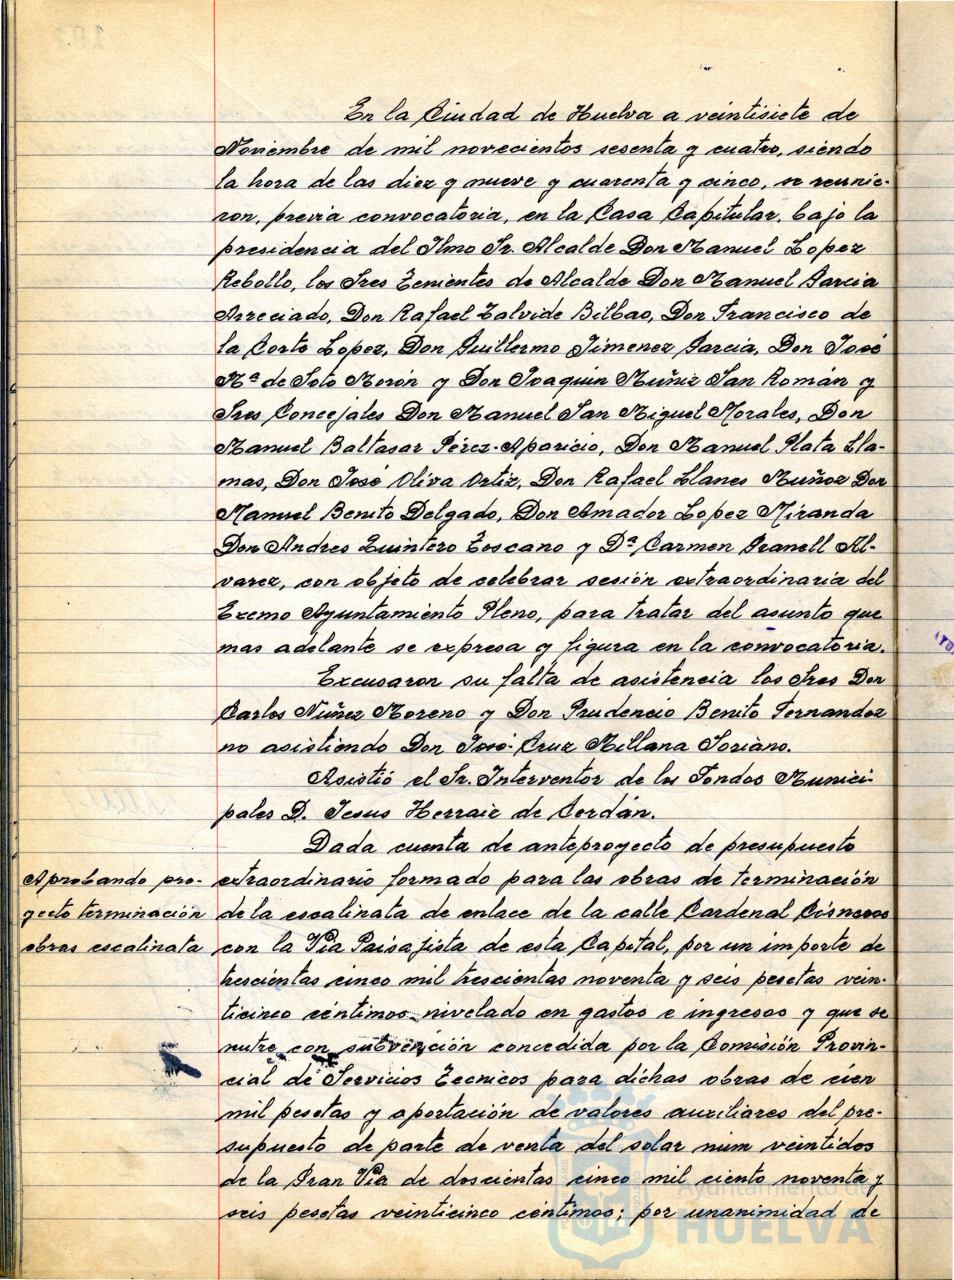 En la Ciudad de Huelva a veintisiete de
Noviembre de mil novecientos sesenta y cuatro, siendo
la hora de las diez y nueve y cuarenta y cinco, se reunie-
ron, previa convocatoria, en la Casa Capitular, bajo la
presidencia del Ilmo Sr. Alcalde Don Manuel Lopez
Rebollo, los Sres Tenientes de Alcalde Don Manuel Garcia
Arreciado, Don Rafael Zalvide Bilbao, Don Francisco de
la Corte Lopez, Don Guillermo Jimenez Garcia, Don José
Mª de Soto Morón y Don Joaquin Muñiz San Román y
Sres Concejales Don Manuel San Miguel Morales, Don
Manuel Baltasar Pérez-Aparicio, Don Manuel Plata Lla-
mas, Don José Oliva Ortiz, Don Rafael Llanes Muñoz Don
Manuel Benito Delgado, Don Amador Lopez Miranda
Don Andres Quintero Toscano y Dª Carmen Granell Al-
varez, con objeto de celebrar sesión extraordinaria del
Excmo Ayuntamiento Pleno, para tratar del asunto que
mas adelante se expresa y figura en la convocatoria.
Excusaron su falta de asistencia los Sres Don
Carlos Núñez Moreno y Don Prudencio Benito Fernandez
no asistiendo Don José Cruz Millana Soriano.
Asistió el Sr. Interventor de los Fondos Munici-
pales D. Jesus Herraiz de Cerdán.
Dada cuenta de anteproyecto de presupuesto
Aprobando pro-
yecto terminación
obras escalinata
extraordinario formado para las obras de terminación
de la escalinata de enlace de la calle Cardenal Cisneros
con la Via Paisajista de esta Capital, por un importe de
trescientas cinco mil trescientas noventa y seis pesetas vein-
ticinco céntimos nivelado en gastos e ingresos y que se
nutre con subvención concedida por la Comisión Provin-
cial de Servicios Tecnicos para dichas obras de cien
mil pesetas y aportación de valores auxiliares del pre-
supuesto de parte de venta del solar núm veintidos
de la Gran Via de doscientas cinco mil ciento noventa y
seis pesetas veinticinco céntimos; por unanimidad de
Ayuntamiento de
HUELVA